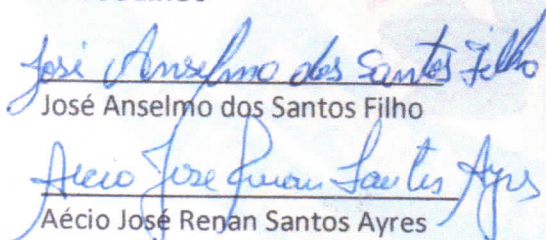 José Anselmo dos Santos Filho
José Anselmo dos Santos Filho
Aécio José Renan Santos Ayres
Aécio José Renan Santos Ayres